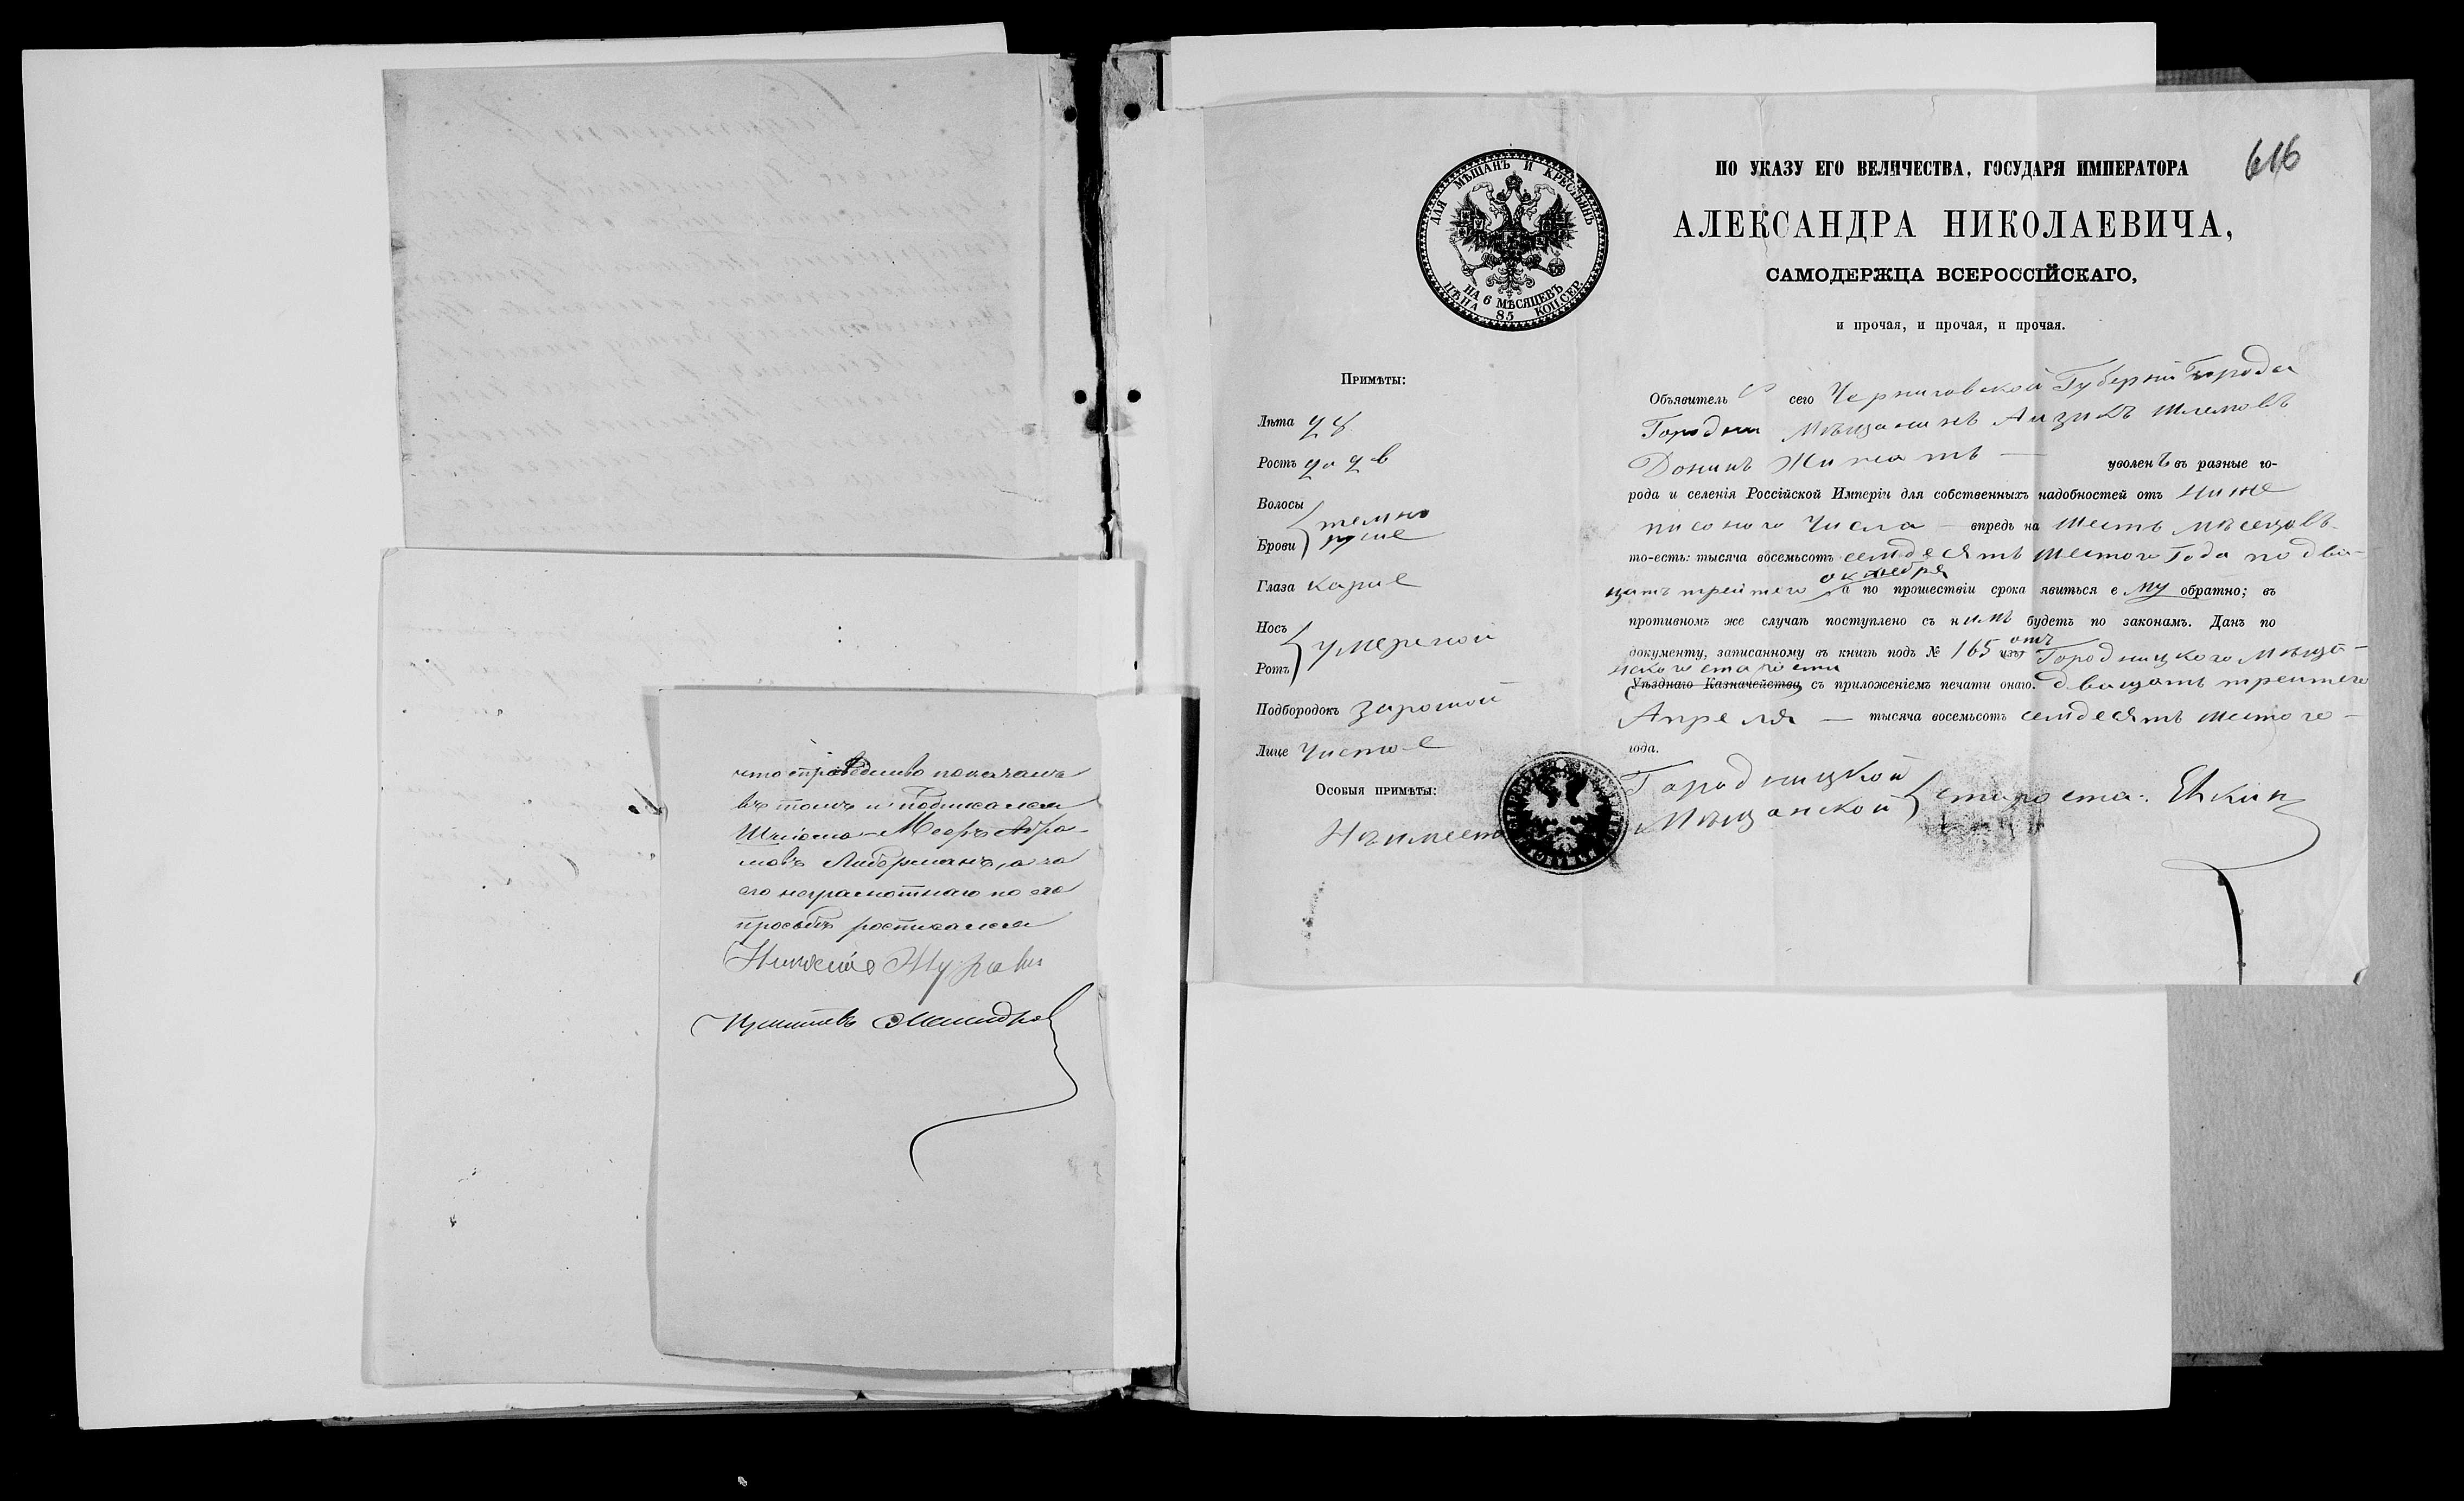 что справедливо показалъ
въ томъ и подписался
Шліома-Мееръ Абра-
мовъ Либерманъ, а за
его неграмотнаго по его
просьбѣ росписался
616
ДЛЯ МѢЩАНЪ И КРЕСТЬЯНЪ
НА 6 МѢСЯЦЕВЪ
ЦѢНА 85 КОП.СЕР.
ПО УКАЗУ ЕГО ВЕЛИЧЕСТВА, ГОСУДАРЯ ИМПЕРАТОРА
АЛЕКСАНДРА НИКОЛАЕВИЧА,
САМОДЕРЖЦА ВСЕРОССІЙСКАГО,
и прочая, и прочая, и прочая.
Примѣты:
Лѣта
Ростъ
Волосы
темно
Брови русые
Глаза карие
Носъ
умереной
Ротъ
Подбородокъ зарошой
Лице Чистое
Особыя примѣты:
Неимеет
Объявитель сего Черниговской Губерніи Города
Городни Мѣщанинъ Аизикъ Шлемовъ
Донинъ Жипатъ — уволенъ въ разные го-
рода и селенія Россійской Имперіи для собственныхъ надобностей отъ ниже
писоного Числа — впредь на шесть мѣсецовъ
то-есть: тысяча восемьсотъ семдесятъ шестого года по два-
октебря
цать третего а по прошествіи срока явиться ему обратно; въ
противномъ же случаѣ поступлено съ нимъ будетъ по законамъ. Данъ по
отъ
документу, записанному въ книгѣ подъ № 165 изъ Городницкого мѣща-
ского старосты
Уѣзднаго Казначейства, съ приложеніемъ печати онаго. двацать третего
Апреля — тысяча восемьсотъ семдесятъ шестого —
года.
Городницкой
Мѣщанской староста: